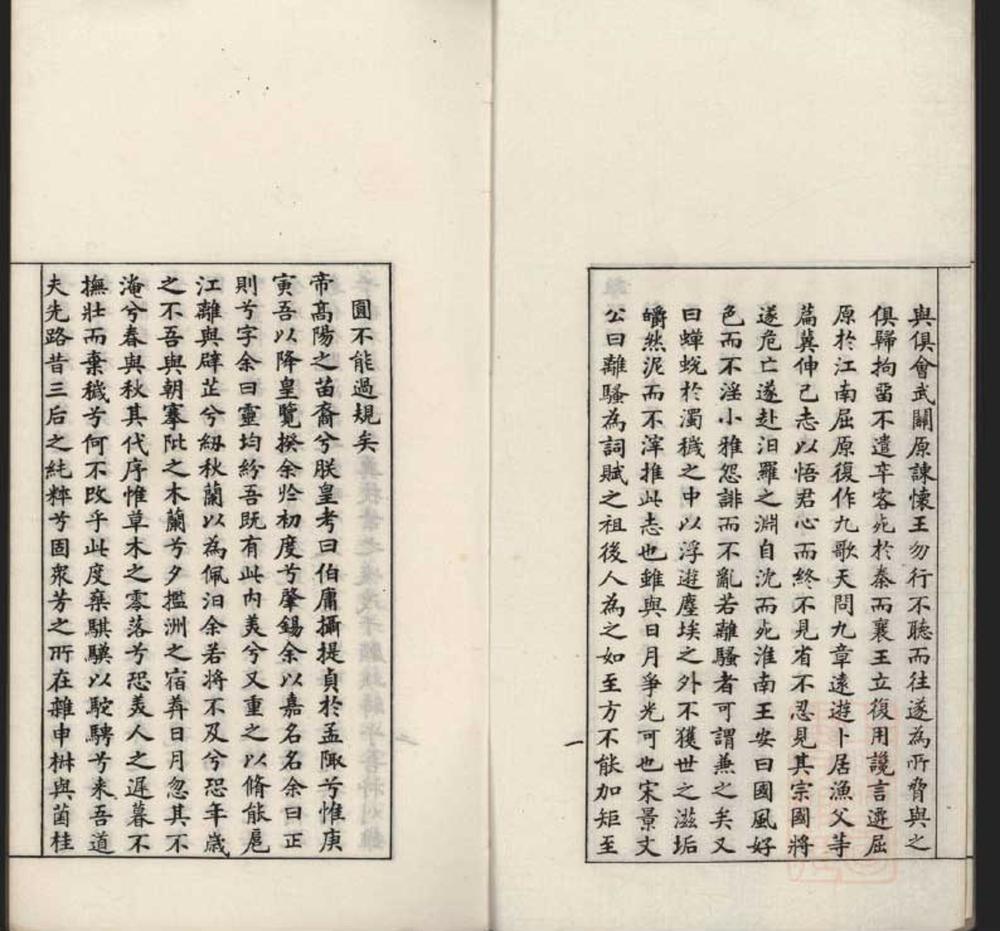 與俱會武關原諫懷王勿行不聽而往遂為所脅與之
俱歸拘畱不遣卒客死於秦而襄王立復用讒言遷屈
原於江南屈原復作九歌天問九章遠遊卜居漁父等
篇冀伸己志以悟君心而終不見省不忍見其宗國將
遂危亡遂赴汨羅之淵自沈而死淮南王安曰國風好
色而不淫小雅怨誹而不亂若離騷者可謂兼之矣又
曰蟬蛻於濁穢之中以浮遊塵埃之外不獲世之滋垢
皭然泥而不滓推此志也雖與日月爭光可也宋景文
公曰離騷為詞賦之祖後人為之如至方不能加矩至
一
圓不能過規矣
帝髙陽之苗裔兮朕皇考曰伯庸攝提貞於孟陬兮惟庚
寅吾以降皇覽揆余於初度兮肇錫余以嘉名名余曰正
則兮字余曰靈均紛吾既有此內美兮又重之以脩能扈
江離與辟芷兮紉秋蘭以為佩汨余若將不及兮恐年歲
之不吾與朝搴阰之木蘭兮夕擥洲之宿莽日月忽其不
淹兮春與秋其代序惟草木之零落兮恐美人之遲暮不
撫壯而棄穢兮何不改乎此度椉騏驥以駝騁兮來吾道
夫先路昔三后之純粹兮固衆芳之所在雜申椒與菌桂